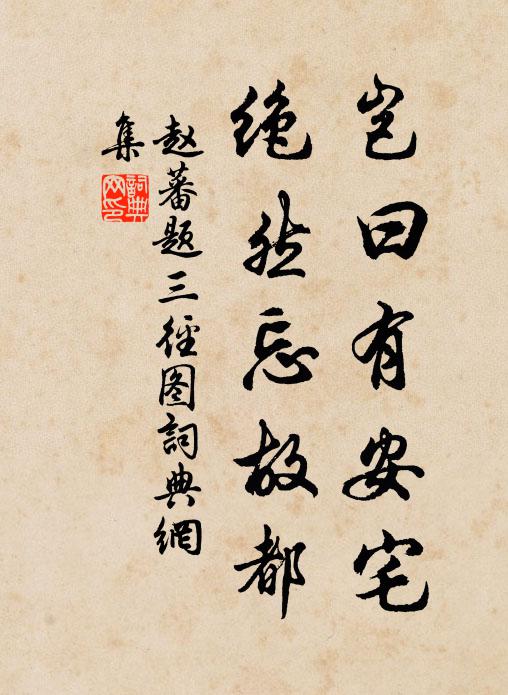 岂曰有安宅
绝然忘故都
赵蕃题三径图词典网
集
词典网印